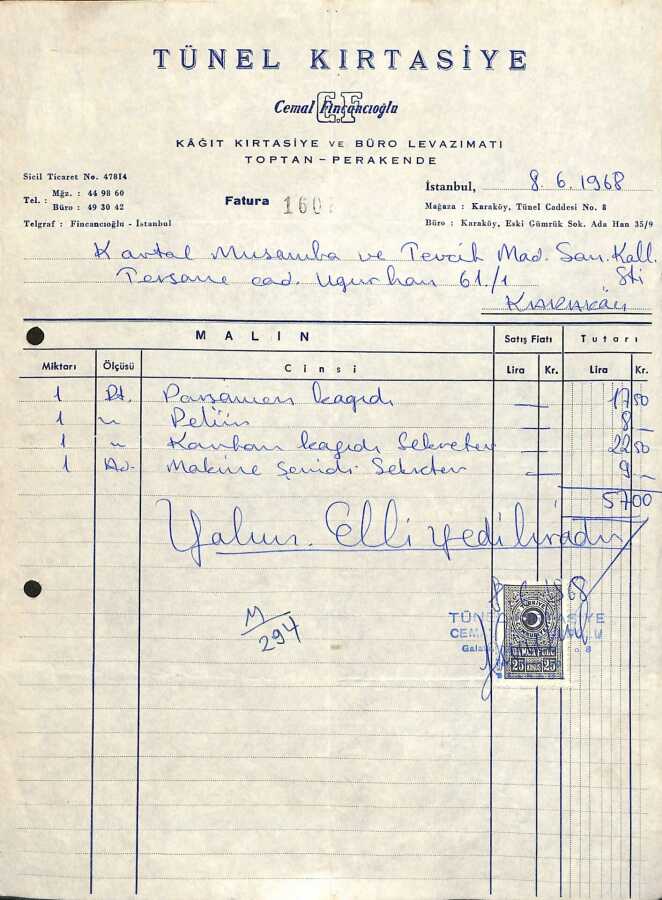 TÜNEL KIRTASİYE
C.F
Cemal Fincancıoğlu
KÂĞIT KIRTASİYE VE BÜRO LEVAZIMATI
TOPTAN - PERAKENDE
Sicil Ticaret No. 47814
Tel. : Mğz. : 44 98 60
Büro : 49 30 42
Telgraf : Fincancıoğlu - İstanbul
Fatura 160
İstanbul, 8.6.1968
Mağaza : Karaköy, Tünel Caddesi No. 8
Büro : Karaköy, Eski Gümrük Sok. Ada Han 35/9
Kartal Muşamba ve Tevcih Mad. San. Koll. Şti
Tersane cad. Uğurhan 61/1
KARAKÖY
MALIN Satış Fiatı Tutarı
Miktarı Ölçüsü Cinsi Lira Kr. Lira Kr.
1 Pt. Parşömen kağıdı — 17 50
1 " Pelür — 8 —
1 " Karbon kagıdı Sekreter — 22 50
1 Ad. Makine Şeridi Sekreter — 9 —
57 00
Yalnız Elli yedi liradır
8.6.1968
M/294
TÜRKİYE
DAMGA PULU
25 KURUŞ 25